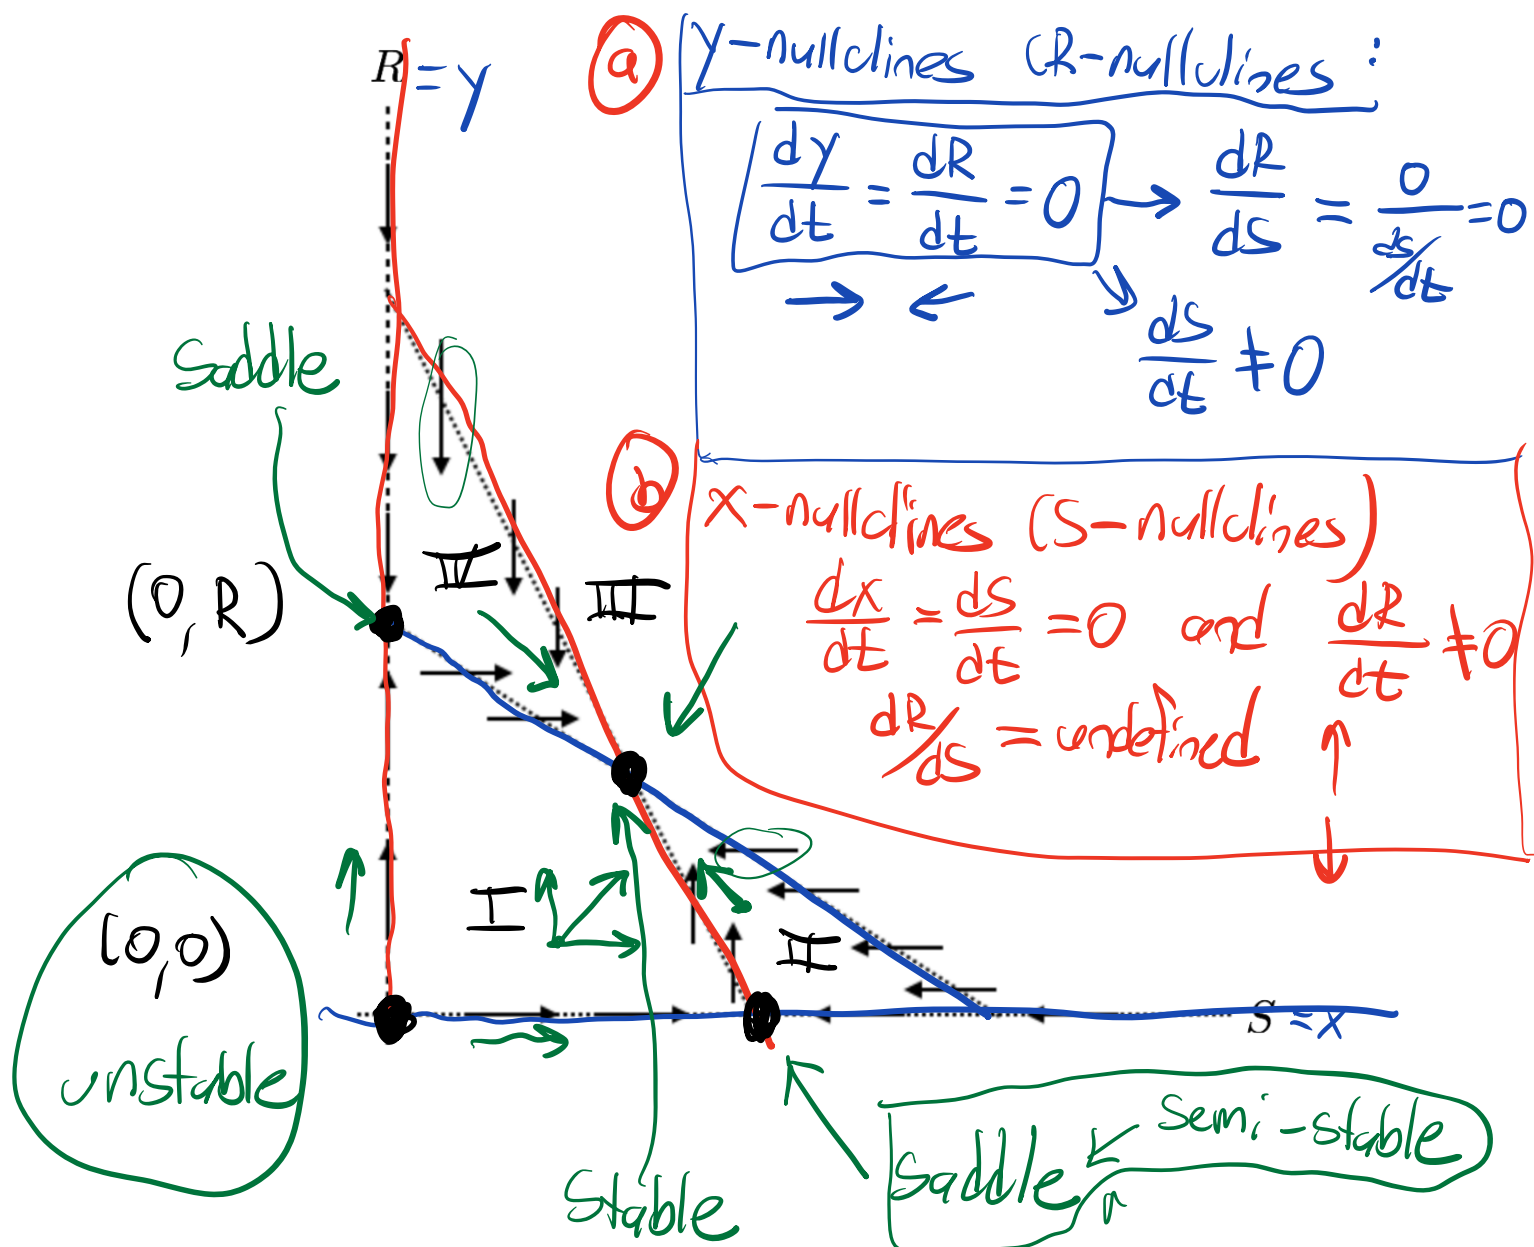 R = y
ⓐ y-nullclines (R-nullclines :
dy/dt = dR/dt = 0 → dR/dS = 0/(ds/dt) = 0
→ ←
ds/dt ≠ 0
Saddle
ⓑ x-nullclines (S-nullclines)
dx/dt = ds/dt = 0 and dR/dt ≠ 0
dR/ds = undefined
(0, R)
IV
III
I
II
(0,0)
unstable
S = x
Stable
Saddle ← Semi-stable